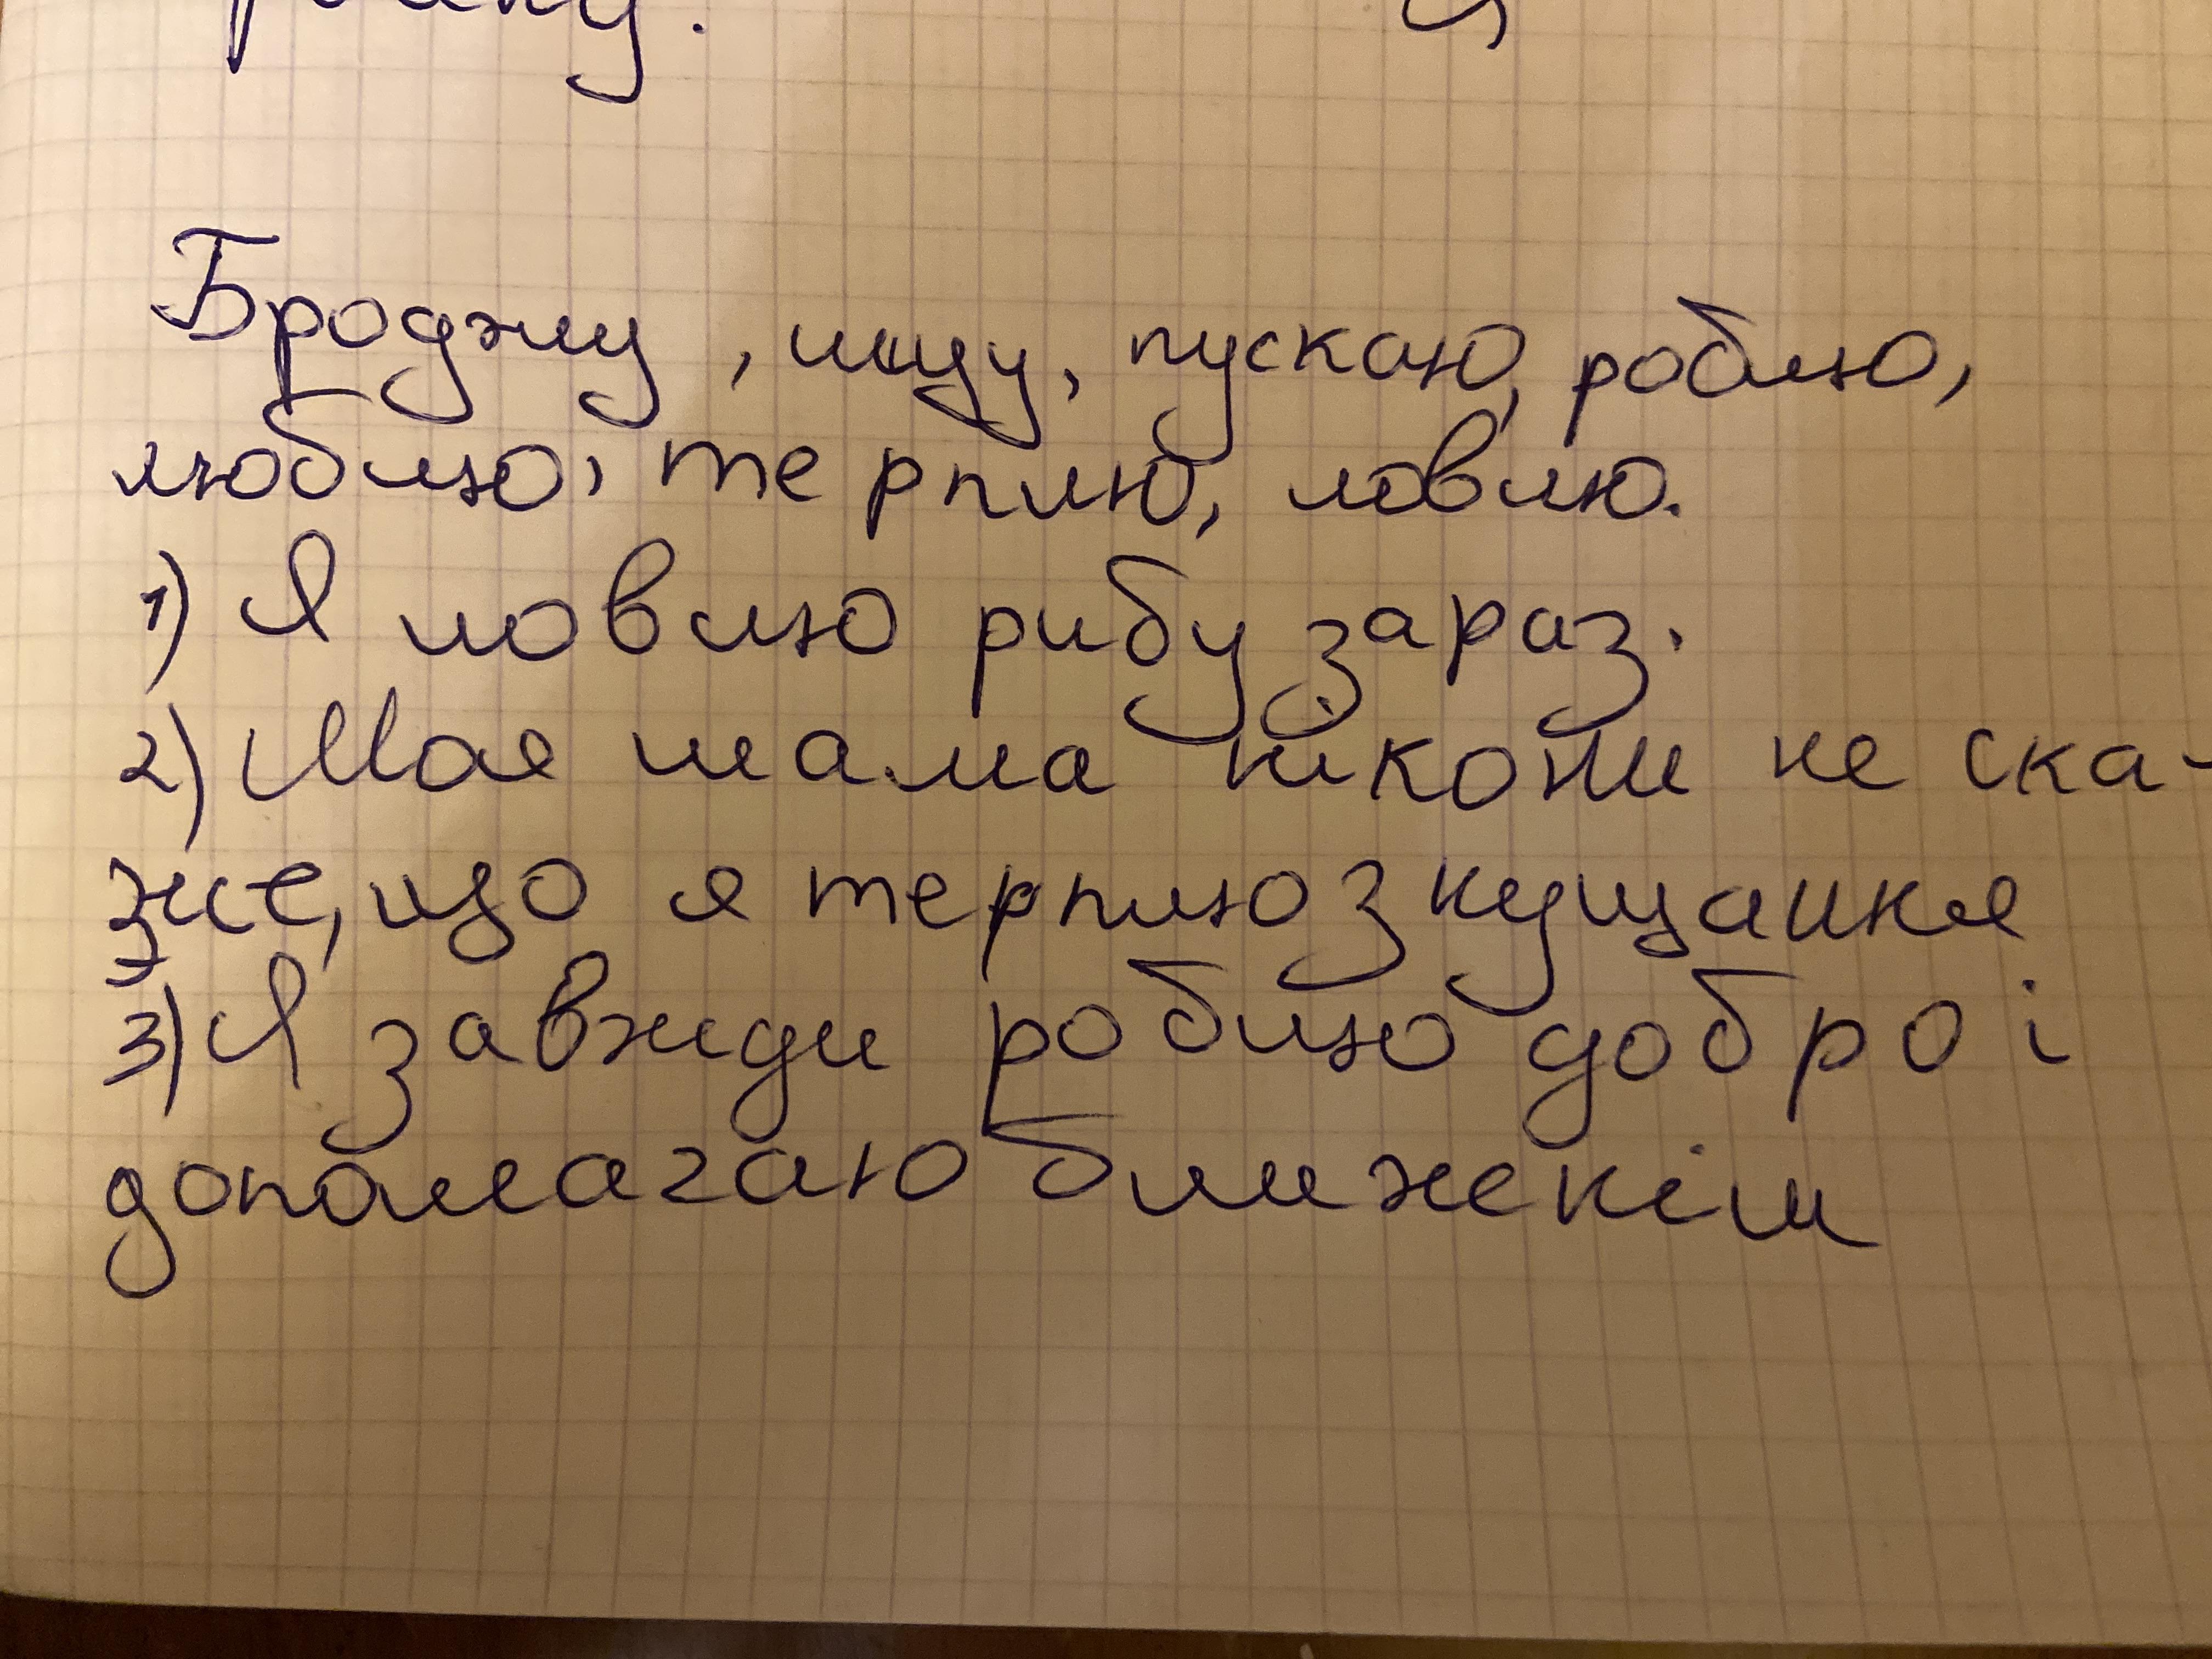 Броджу, ищу, пускаю, роблю,
люблю, терплю, ловлю.
1) Я ловлю рибу зараз.
2) Моя мама ніколи не ска-
же, що я терплю знущання
3) Я завжди роблю добро і
допомагаю ближнім